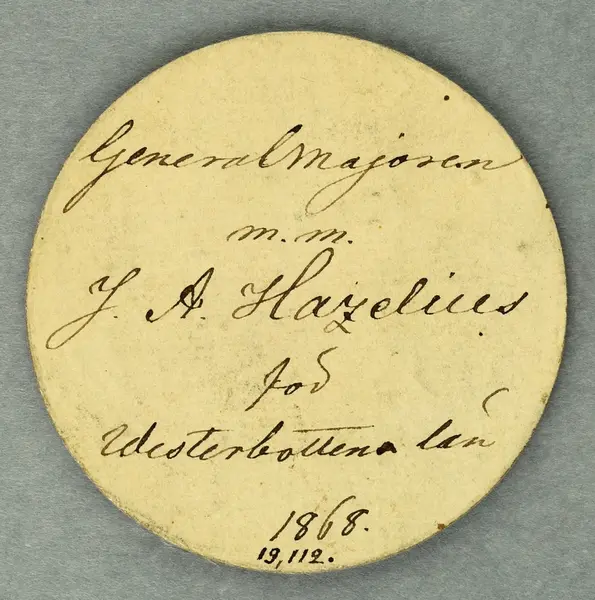 Generalmajoren
m.m.
J. A. Hazelius
för
Westerbottens län
1868.
19,112.